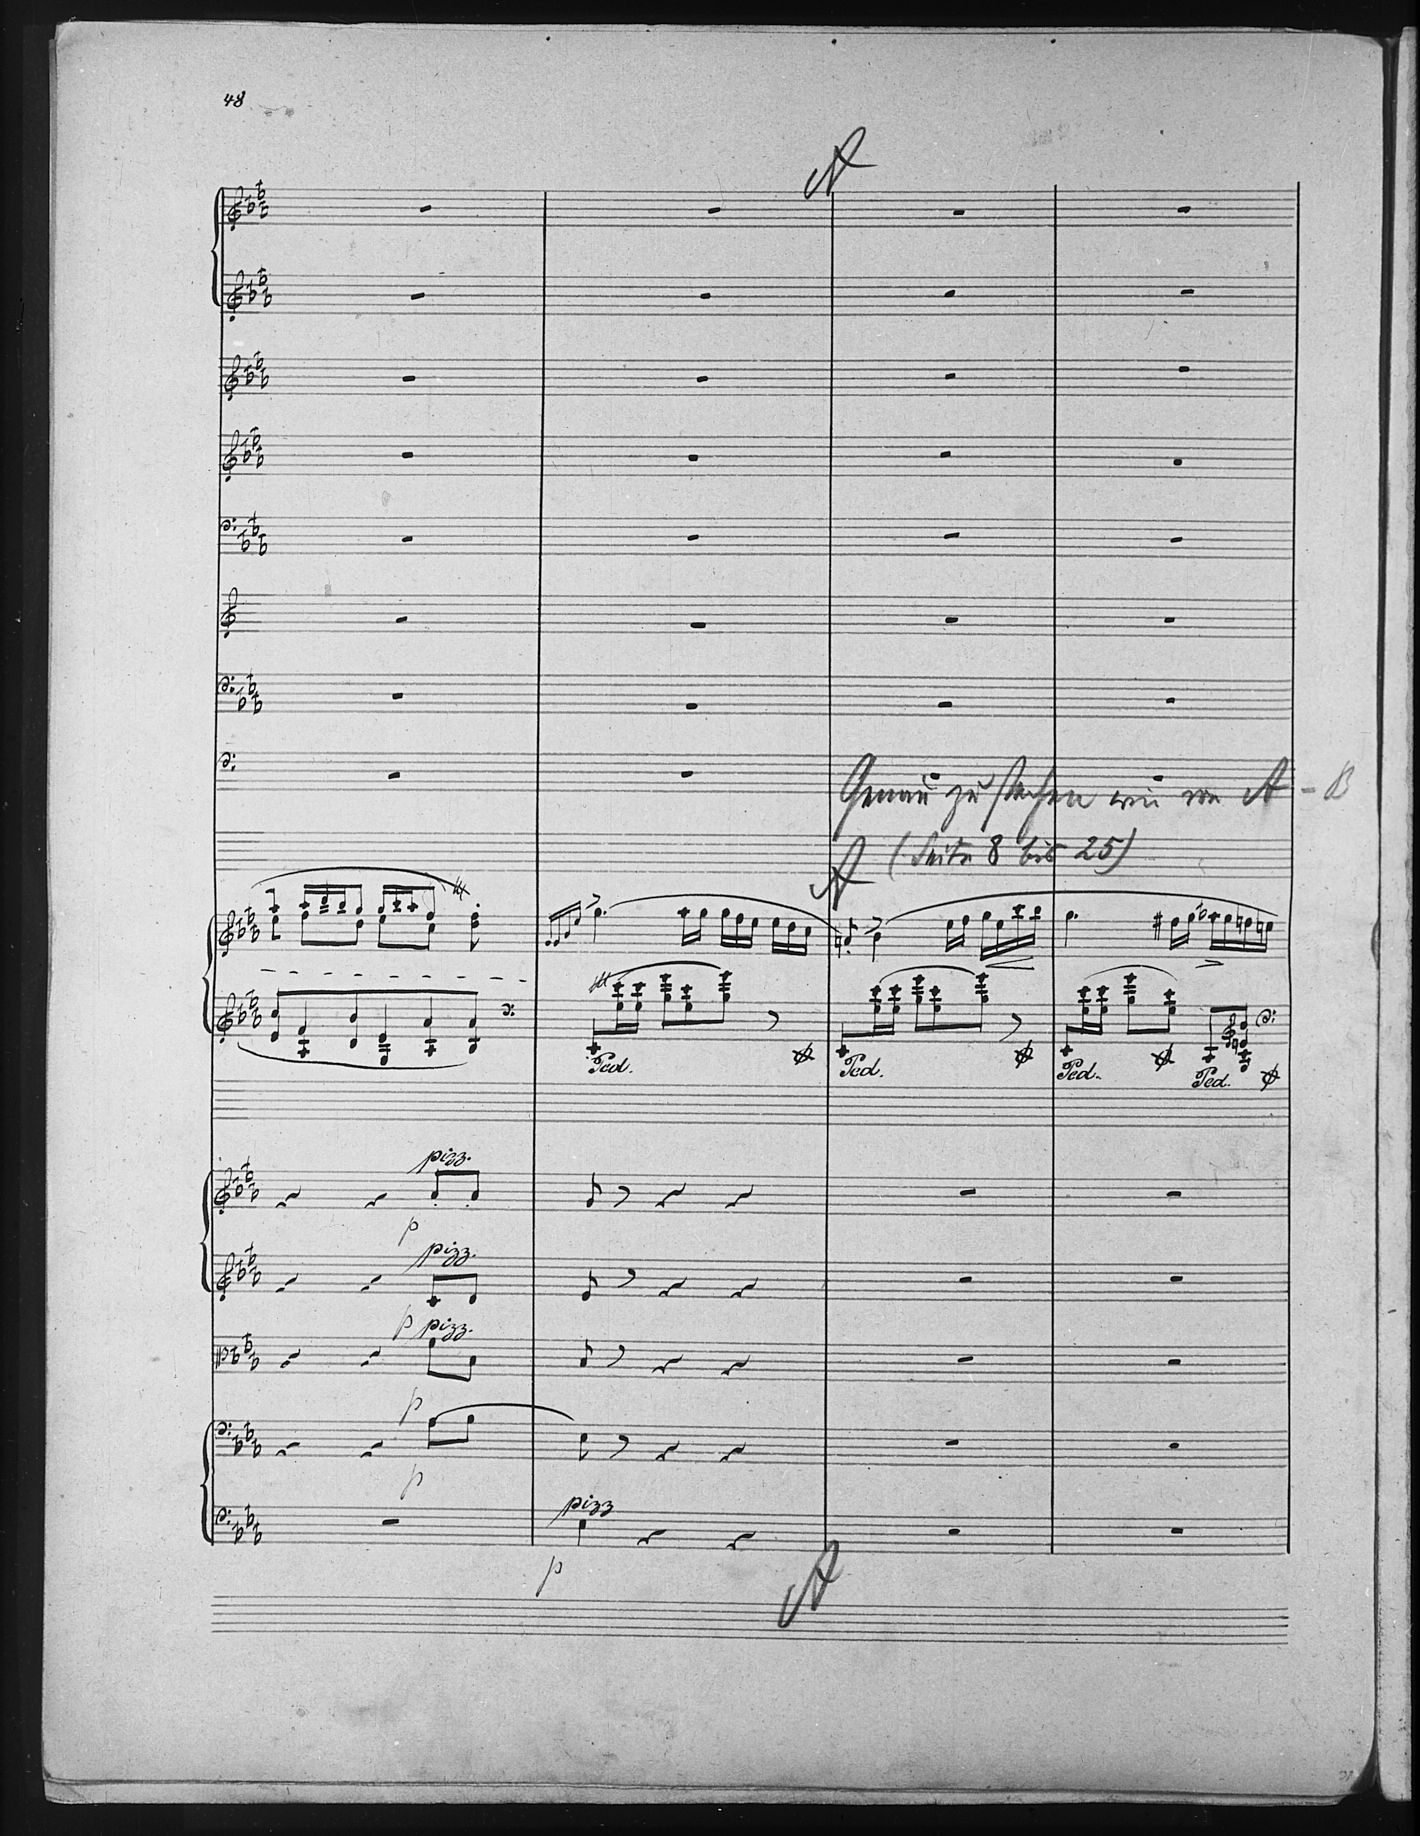 48
A
Genau zu stechen wie von A - B
A (Seite 8 bis 25)
Ped. Ped. Ped. Ped.
pizz.
p
pizz.
p pizz.
p
p
pizz
p
A